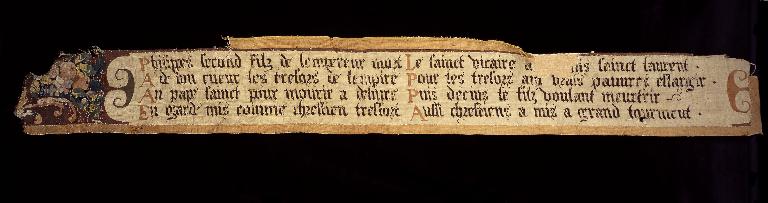 Philipes second filz de lempereur mort
A de son cueur les tresors de lempire
An pape sainct pour mourir a deliure
En garde mis comme chrestien tresort
Le sainct vicaire a mis sainct laurent ·
Pour ses tresors aux vrais pauures eslargir ·
Puis decius le filz voulant meurtrir
Aussi chrestiens a mis a grand tourment ·